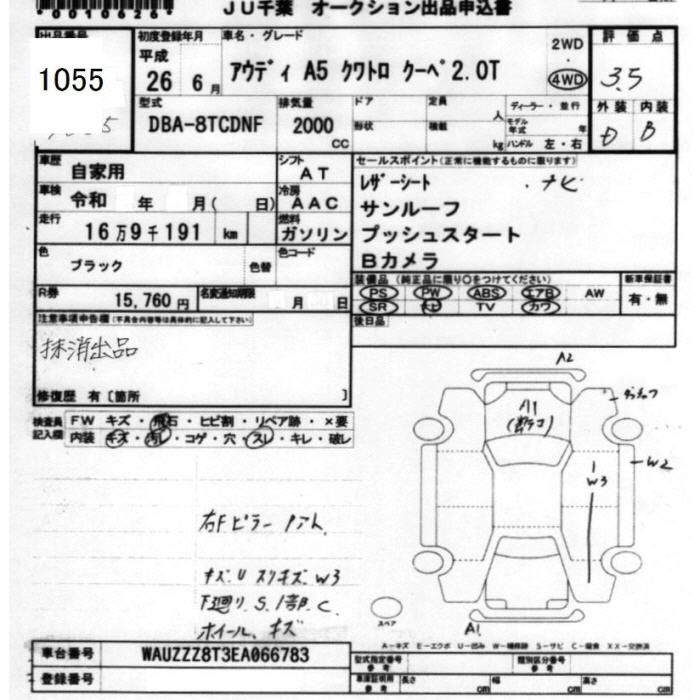 *0010626*
JU千葉 オークション出品申込書
出品番号
1055
初度登録年月
平成
26 6月
車名・グレード
アウディ A5 クワトロ クーペ2.0T
2WD
・
4WD
評価点
3.5
外装 内装
D B
型式
DBA-8TCDNF
排気量
2000
CC
ドア
形状
定員
人
積載
kg
ディーラー・並行
モデル年式 年
ハンドル 左・右
車歴
自家用
シフト
AT
車検
令和 年 月( 日)
冷房
AAC
走行
16万9千191 km
燃料
ガソリン
色
ブラック
色替
色コード
R券
15,760円
名変通知期限
月 日
セールスポイント(正常に機能するものに限ります)
レザーシート ・ナビ
サンルーフ
プッシュスタート
Bカメラ
装備品 (純正品に限り○をつけてください)
PS PW ABS エアB AW
SR ナビ TV カワ
新車保証書
有・無
後日品
注意事項申告欄(不具合内容等は具体的に記入して下さい)
抹消出品
修復歴 有〔箇所 〕
検査員記入欄
FW キズ・飛石・ヒビ割・リペア跡・×要
内装 キズ・汚レ・コゲ・穴・スレ・キレ・破レ
A2
A1
W2
1
W3
右Fピラー アト
キズ.U スリキズ.W3
下廻り.S.1部C.
ホイール.キズ
スペア
A1
A-キズ E-エクボ U-凹み W-補修跡 S-サビ C-腐食 XX-交換済
車台番号
WAUZZZ8T3EA066783
登録番号
型式指定番号
参考
類別区分番号
参考
車庫証明用
参考
長さ cm
幅 cm
高さ cm